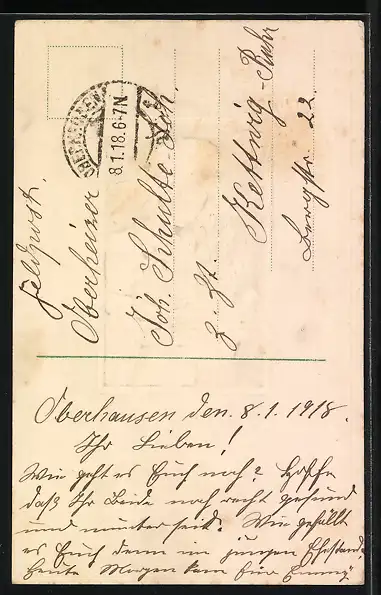 Feldpost.
Oberheizer
Joh. Schulte-
z. Zt. Kettwig-Ruhr
Bergstr. 22
OBERHAUSEN
8.1.18.6-7N
Oberhausen den. 8.1.1918.
Ihr Lieben!
Wie geht es Euch noch? Hoffe
daß Ihr Beide noch recht gesund
und munter seid. Wie gefällt
es Euch denn im jungen Ehestand.
Heute Morgen kam